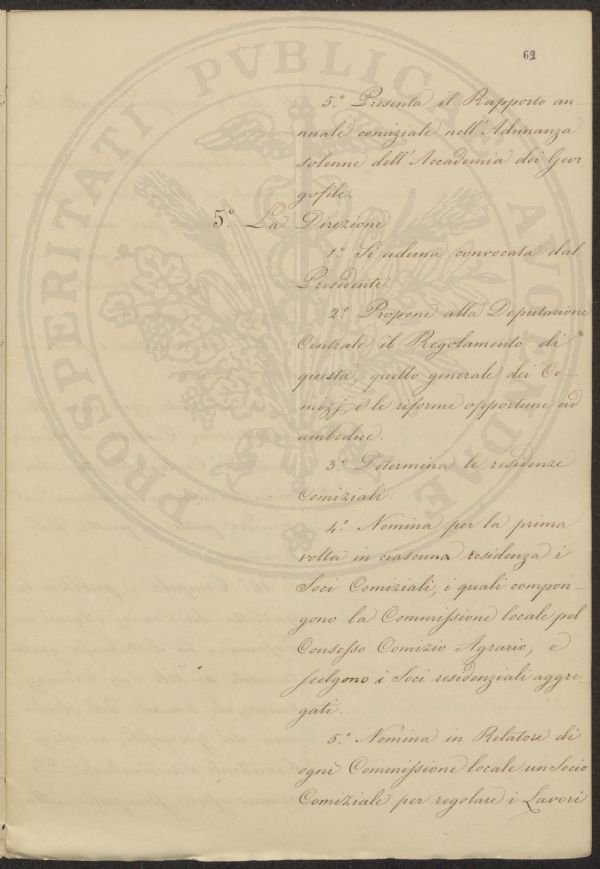 69
5.º Presenta il Rapporto an-
nuale comiziale nell'Adunanza
solenne dell'Accademia dei Geor-
gofili.
5.º La Direzione
1.º Si aduna convocata dal
Presidente.
2.º Propone alla Deputazione
Centrale il Regolamento di
questa, quello generale dei Co-
mizj, e le riforme opportune ad
ambedue.
3.º Determina le residenze
Comiziali.
4.º Nomina per la prima
volta in ciascuna residenza i
Soci Comiziali, i quali compon-
gono la Commissione locale pel
Consesso Comizio Agrario, e
scelgono i Soci residenziali aggre-
gati.
5.º Nomina in Relatore di
ogni Commissione locale un Socio
Comiziale per regolare i Lavori
PROSPERITATI PVBLICAE AVGENDAE